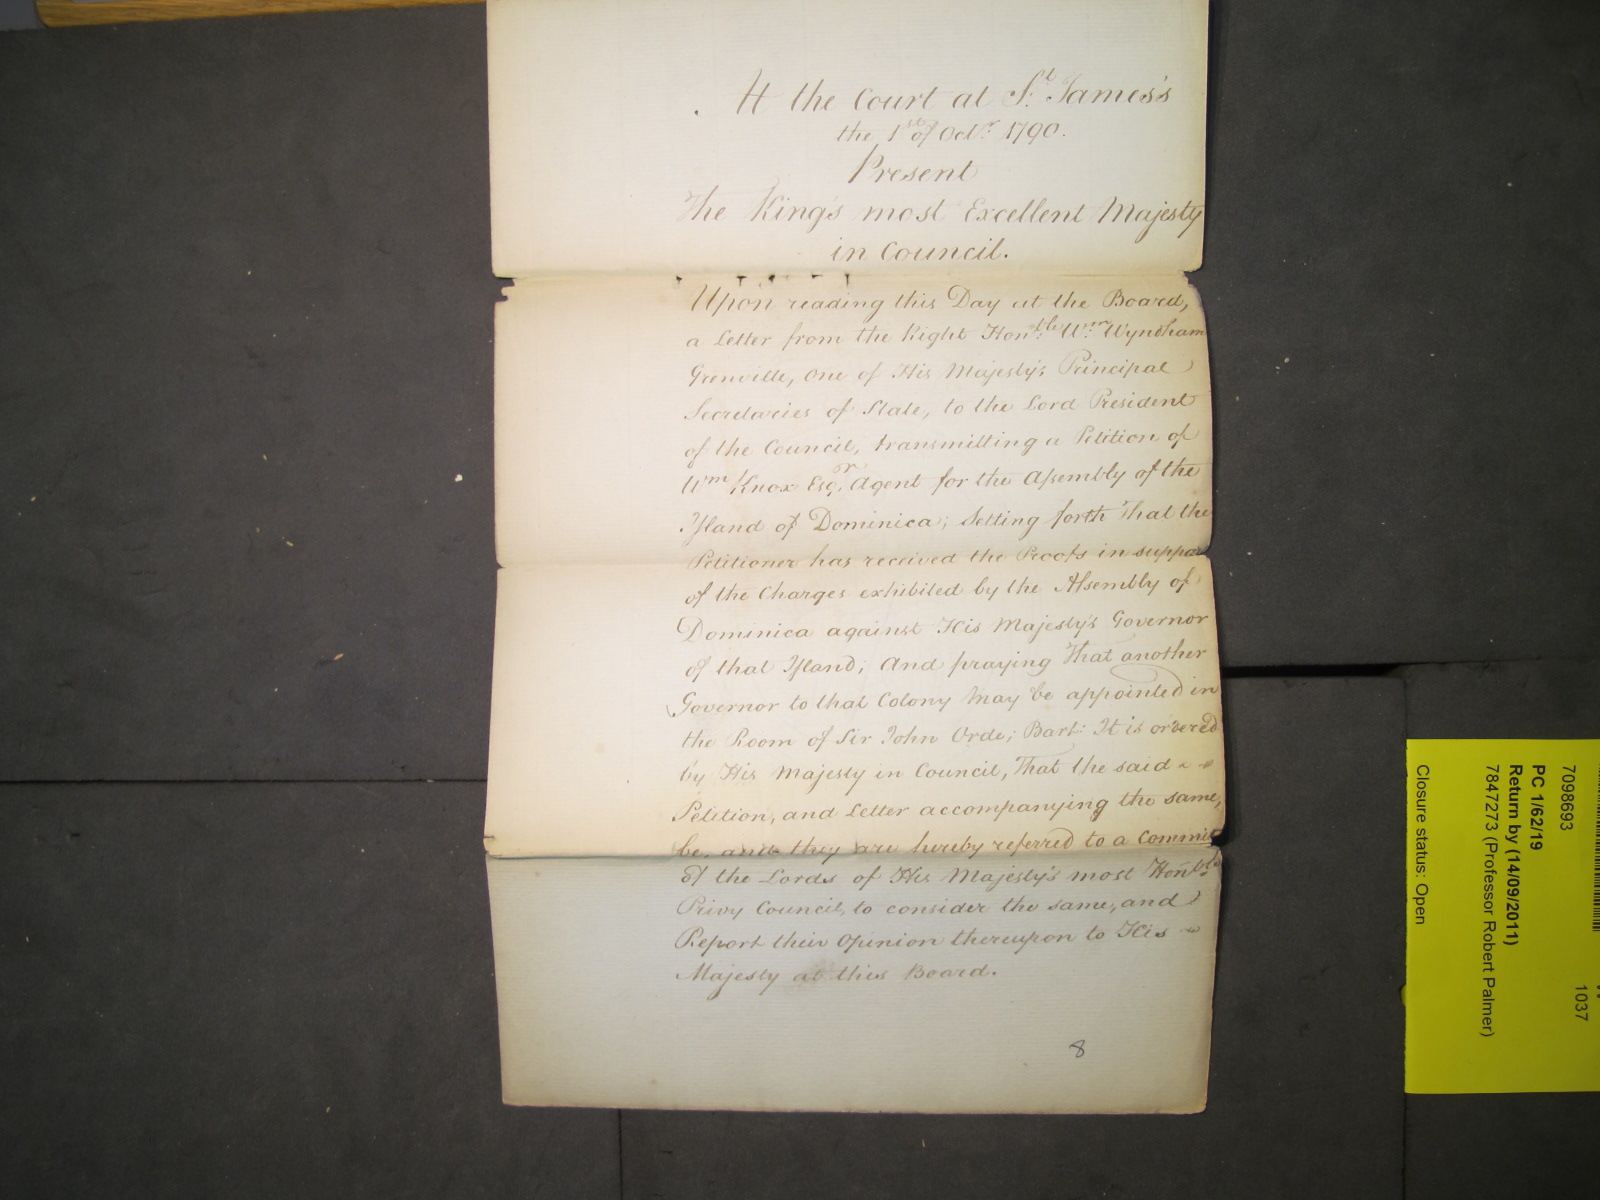 At the Court at St. James's
the 1st of Octr. 1790.
Present
The King's most Excellent Majesty
in Council.
Upon reading this Day at the Board,
a Letter from the Right Honble. Wm. Wyndham
Grenville, One of His Majesty's Principal
Secretaries of State, to the Lord President
of the Council, transmitting a Petition of
Wm Knox Esqr. Agent for the Assembly of the
Island of Dominica; Setting forth That the
Petitioner has received the Proofs in suppor
of the Charges exhibited by the Assembly of
Dominica against His Majesty's Governor
of that Island; And praying That another
Governor to that Colony may be appointed in
the Room of Sir John Orde; Bart: It is ordered
by His Majesty in Council, That the said
Petition, and Letter accompanying the same,
be, and they are hereby referred to a Commit
of the Lords of His Majesty's most Honble.
Privy Council, to consider the same, and
Report their Opinion thereupon to His
Majesty at this Board.
8
1037
7098693
PC 1/62/19
Return by (14/09/2011)
7847273 (Professor Robert Palmer)
Closure status: Open